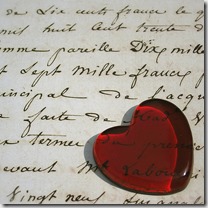 de Six cents france le q
mil huit cent trente d
omme pareille Dix mille
et Sept mille francs
incipal de l'acqu
faite de
en termes du premier
devant Mr
Vingt neuf